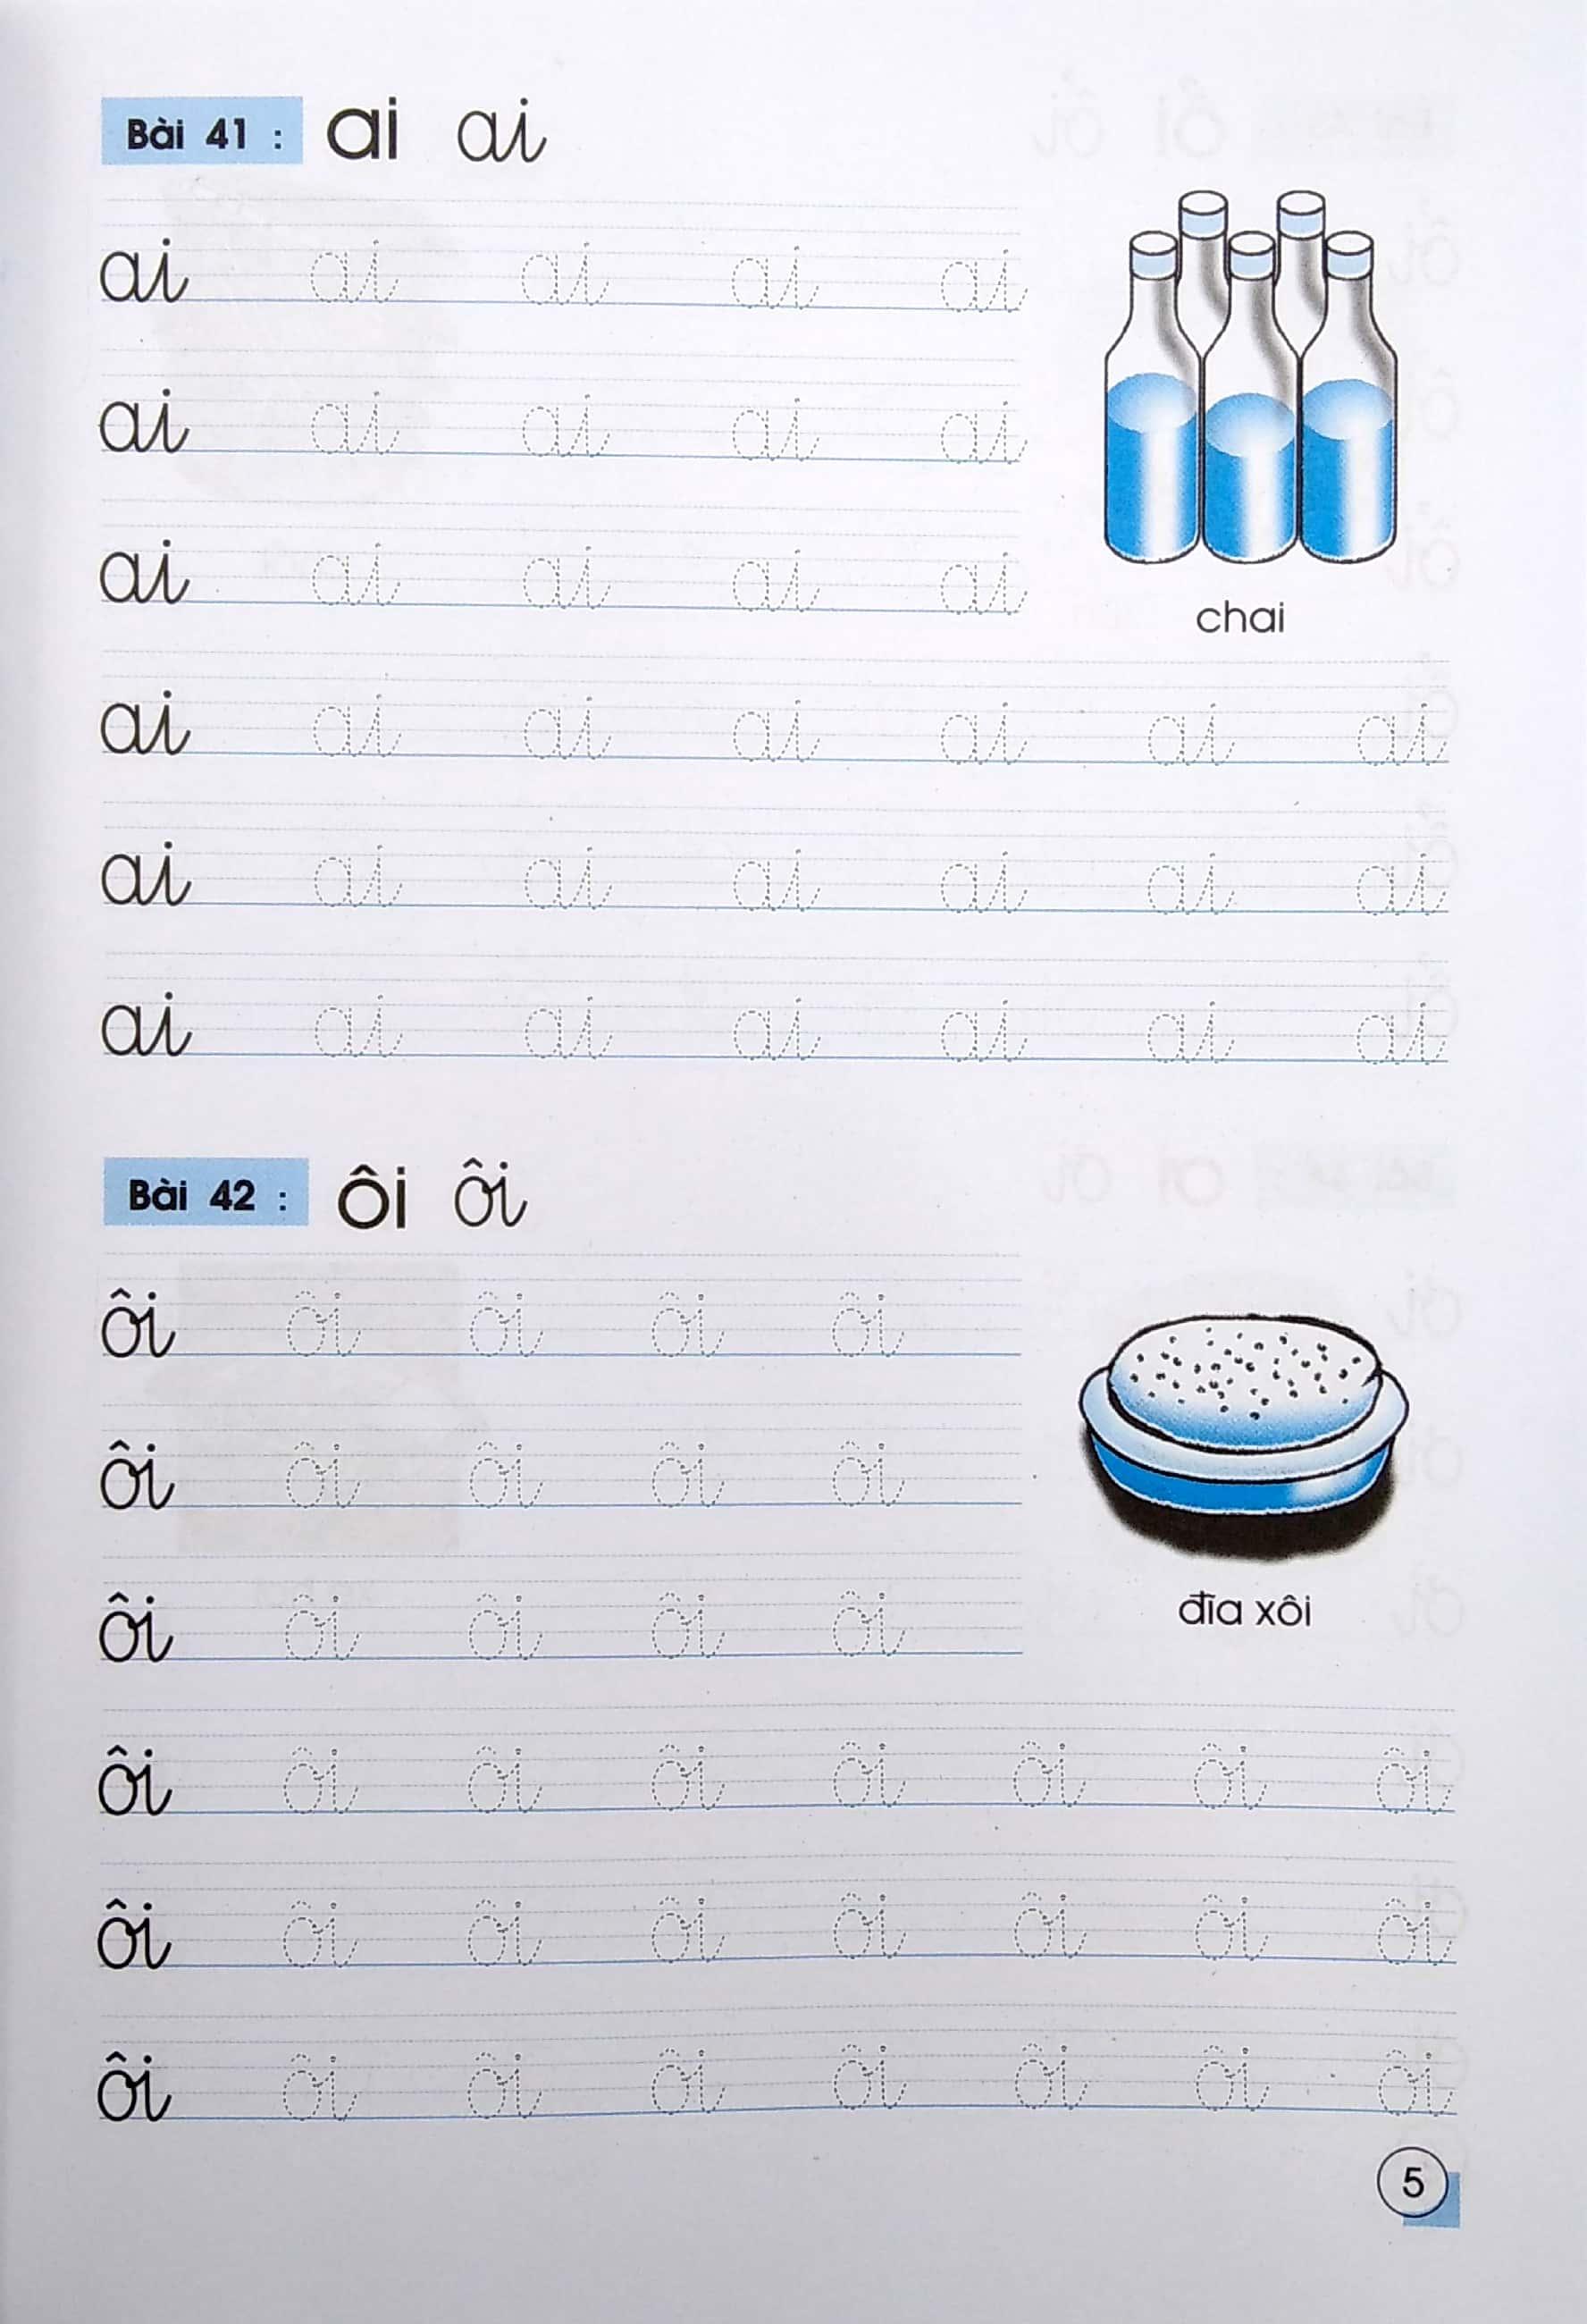 Bài 41 : ai ai
ai ai ai ai ai
ai ai ai ai ai
ai ai ai ai ai
chai
ai ai ai ai ai ai ai
ai ai ai ai ai ai ai
ai ai ai ai ai ai ai
Bài 42 : ôi ôi
ôi ôi ôi ôi ôi
ôi ôi ôi ôi ôi
ôi ôi ôi ôi ôi
đĩa xôi
ôi ôi ôi ôi ôi ôi ôi ôi
ôi ôi ôi ôi ôi ôi ôi ôi
ôi ôi ôi ôi ôi ôi ôi ôi
5